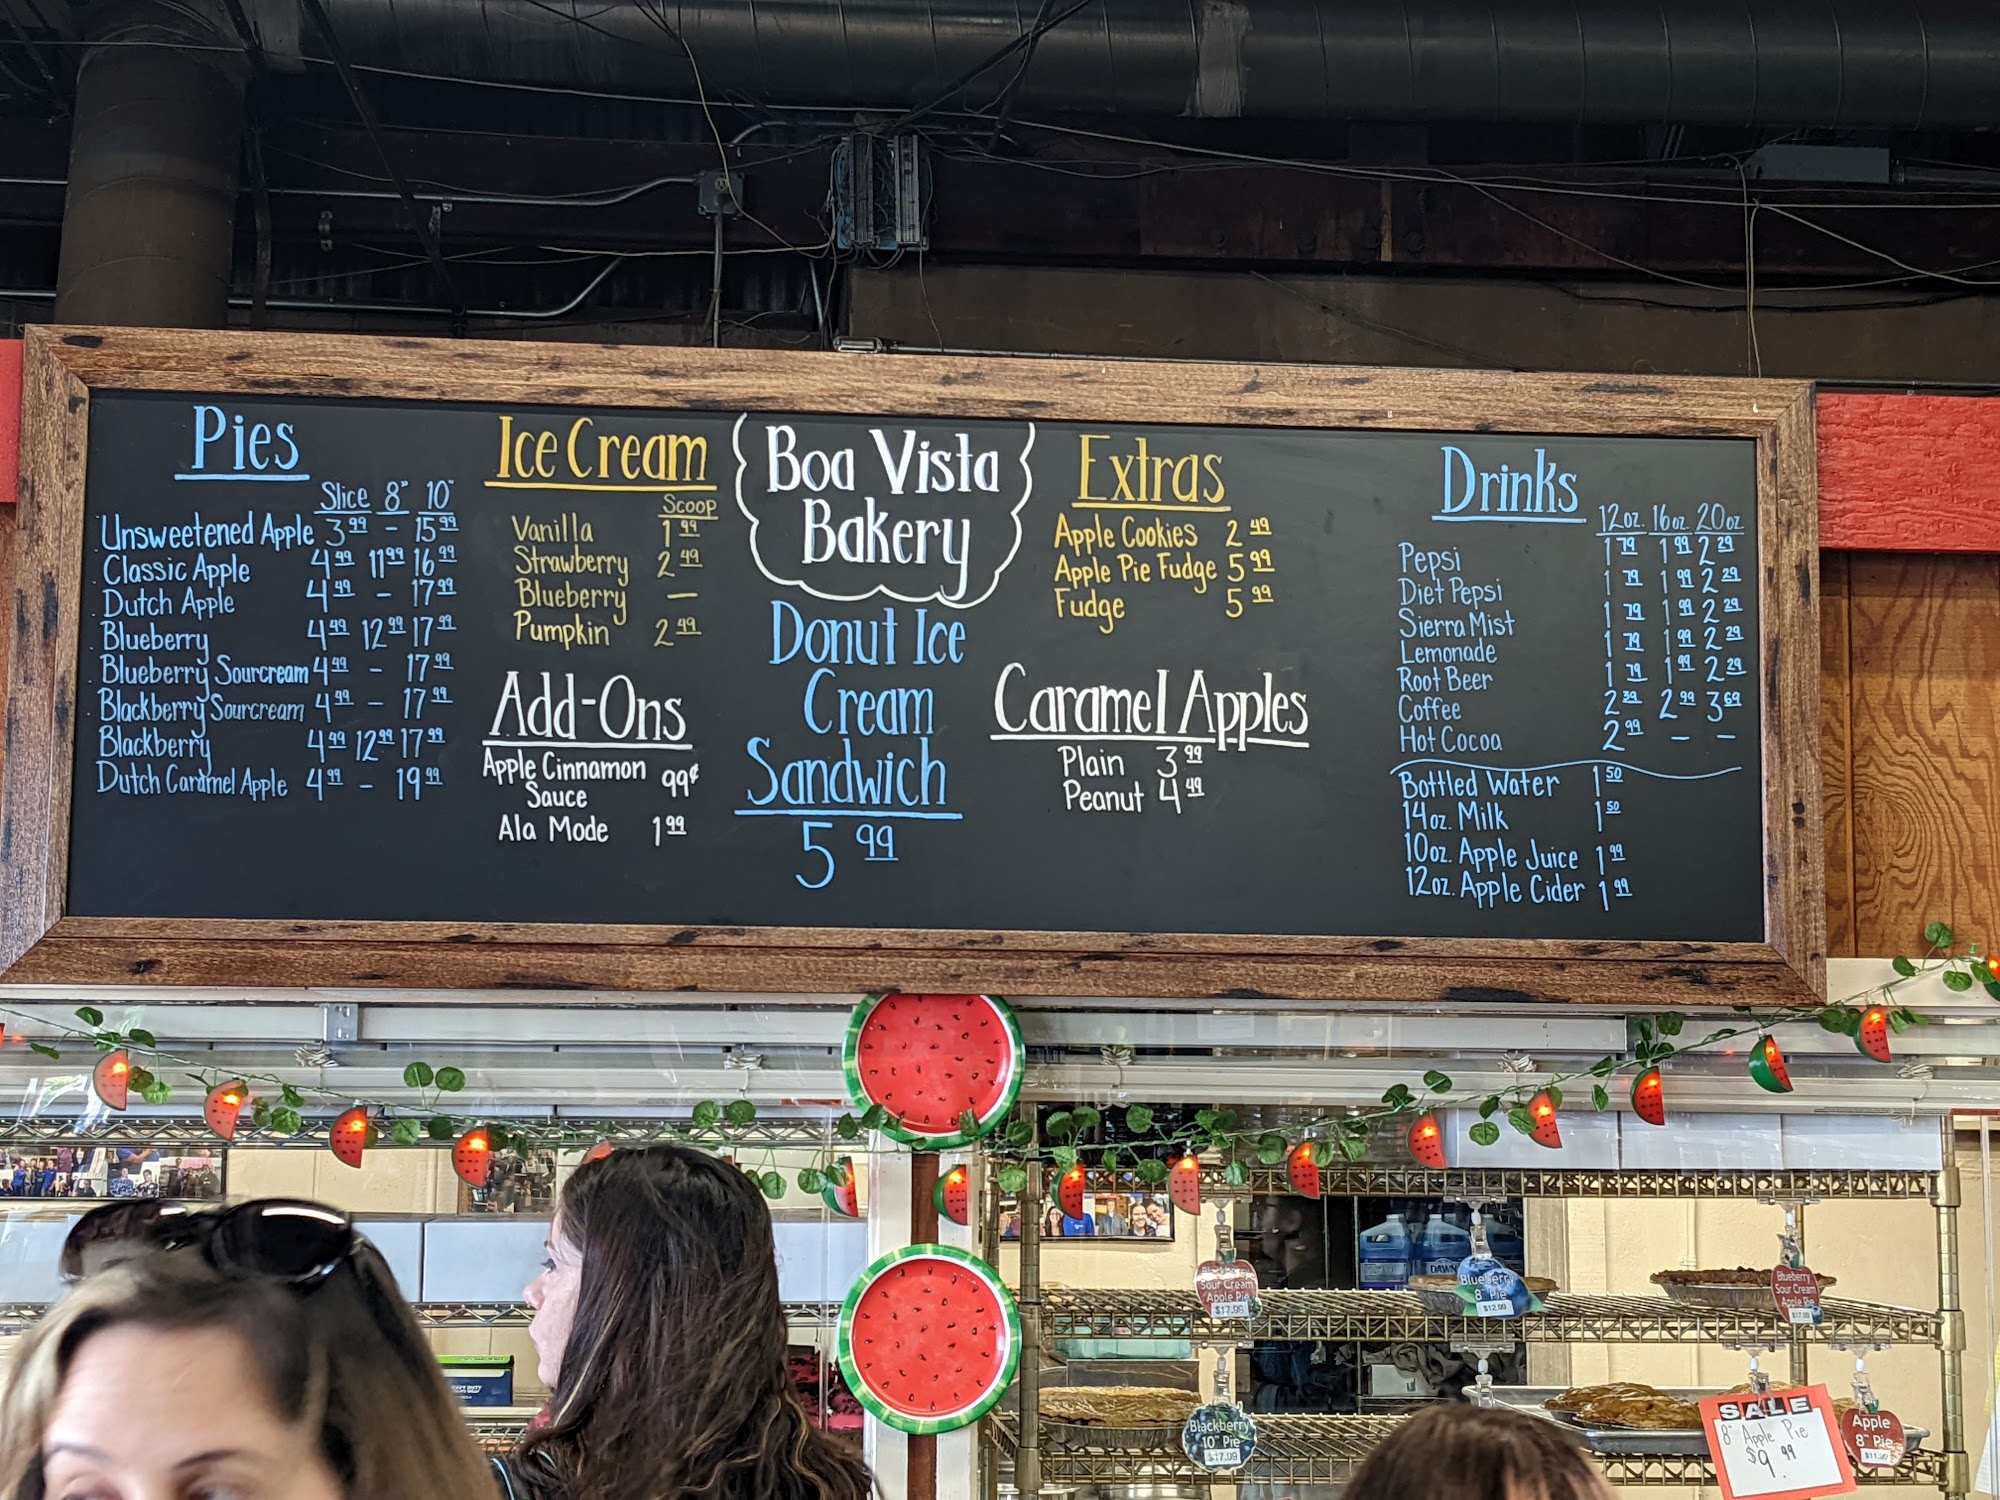 Pies
Slice 8" 10"
Unsweetened Apple 3 99 - 15 99
Classic Apple 4 99 11 99 16 99
Dutch Apple 4 49 - 17 99
Blueberry 4 99 12 99 17 99
Blueberry Sourcream 4 99 - 17 99
Blackberry Sourcream 4 99 - 17 99
Blackberry 4 99 12 99 17 99
Dutch Caramel Apple 4 99 - 19 99
Ice Cream
Scoop
Vanilla 1 99
Strawberry 2 49
Blueberry —
Pumpkin 2 49
Add-Ons
Apple Cinnamon
Sauce 99¢
Ala Mode 1 99
Boa Vista
Bakery
Donut Ice
Cream
Sandwich
5 99
Extras
Apple Cookies 2 49
Apple Pie Fudge 5 99
Fudge 5 99
Caramel Apples
Plain 3 99
Peanut 4 49
Drinks
12oz. 16oz. 20oz.
Pepsi 1 79 1 99 2 29
Diet Pepsi 1 79 1 99 2 29
Sierra Mist 1 79 1 99 2 29
Lemonade 1 79 1 99 2 29
Root Beer 1 79 1 99 2 29
Coffee 2 39 2 99 3 69
Hot Cocoa 2 99 — —
Bottled Water 1 50
14oz. Milk 1 50
10oz. Apple Juice 1 99
12oz. Apple Cider 1 99
Sour Cream
Apple Pie
$17.99
DAWN
Blueberry
8" Pie
$12.99
Blueberry
Sour Cream
Apple Pie
$17.99
Blackberry
10" Pie
$17.99
SALE
8" Apple Pie
$9.99
Apple
8" Pie
$11.99